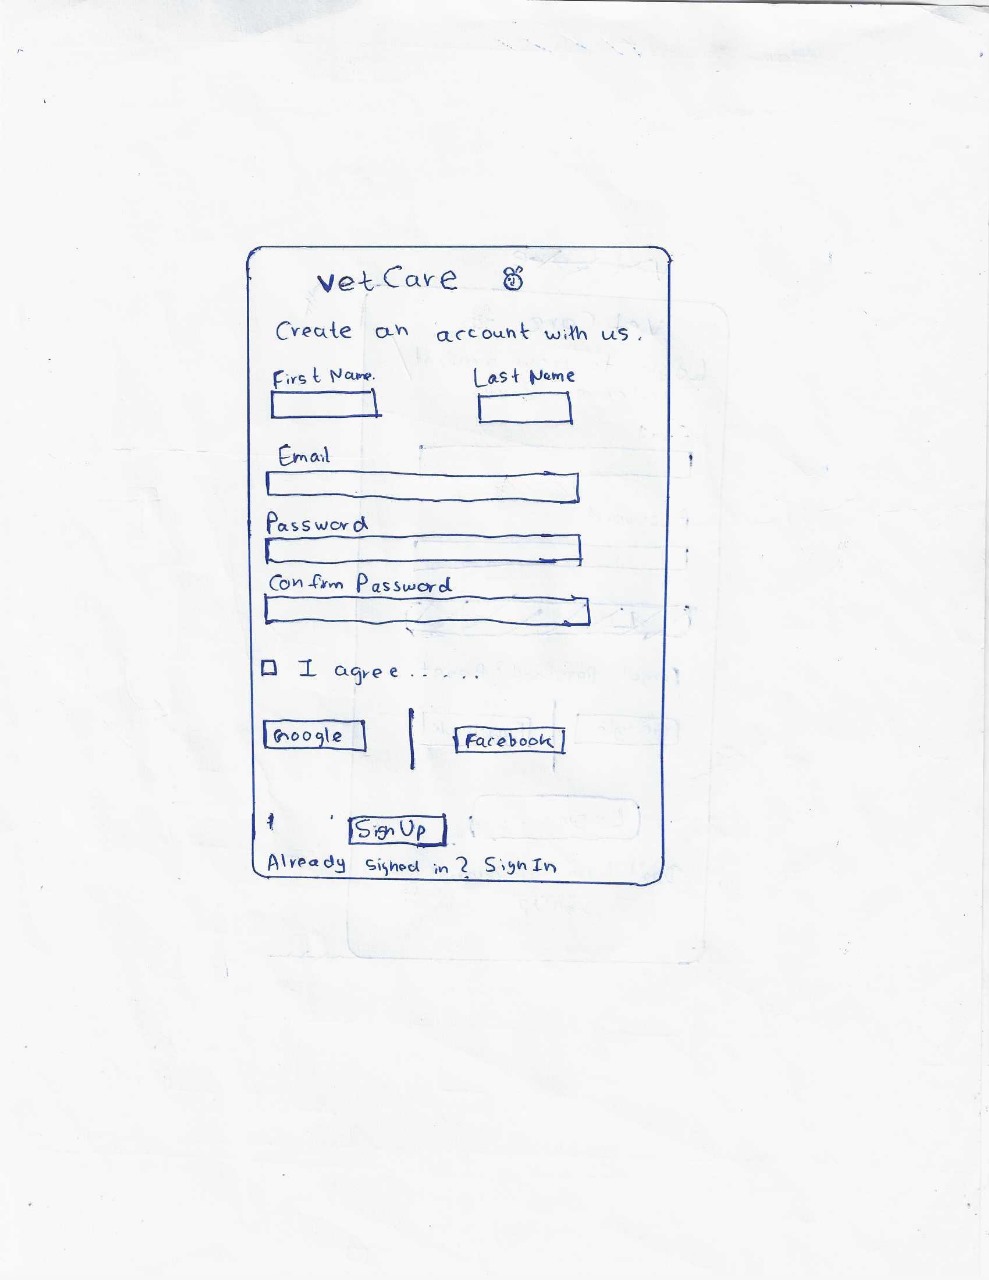 VetCare
Create an account with us.
First Name. Last Name
Email
Password
Confirm Password
I agree......
Google Facebook
Sign Up
Already signed in? Sign In